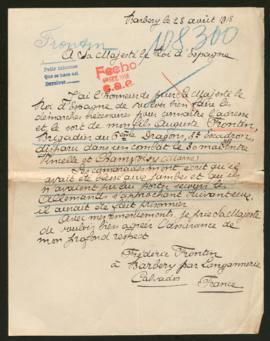 Barbery le 28 août 1918
Frontin
108300
A Sa Majesté le Roi d'Espagne
Fecho
S.a.e.
J'ai l'honneur de prier Sa Majesté le
Roi d'Espagne de vouloir bien faire les
démarches nécessaires pour connaître l'adresse
et le sort de mon fils Auguste Frontin,
Brigadier du Dragons, Escadron
disparu dans un combat le 30 mai entre
et (Marne)
Ses camarades m'ont écrit qu'il
avait été blessé aux jambes et qu'ils
n'avaient pu lui porter secours les
Allemands s'approchant suivant eux
il aurait été fait prisonnier
Avec mes remerciements, je prie sa Majesté
de vouloir bien agréer l'assurance de
mon profond respect
Frédéric Frontin
à Barbery par Langannerie
Calvados
France